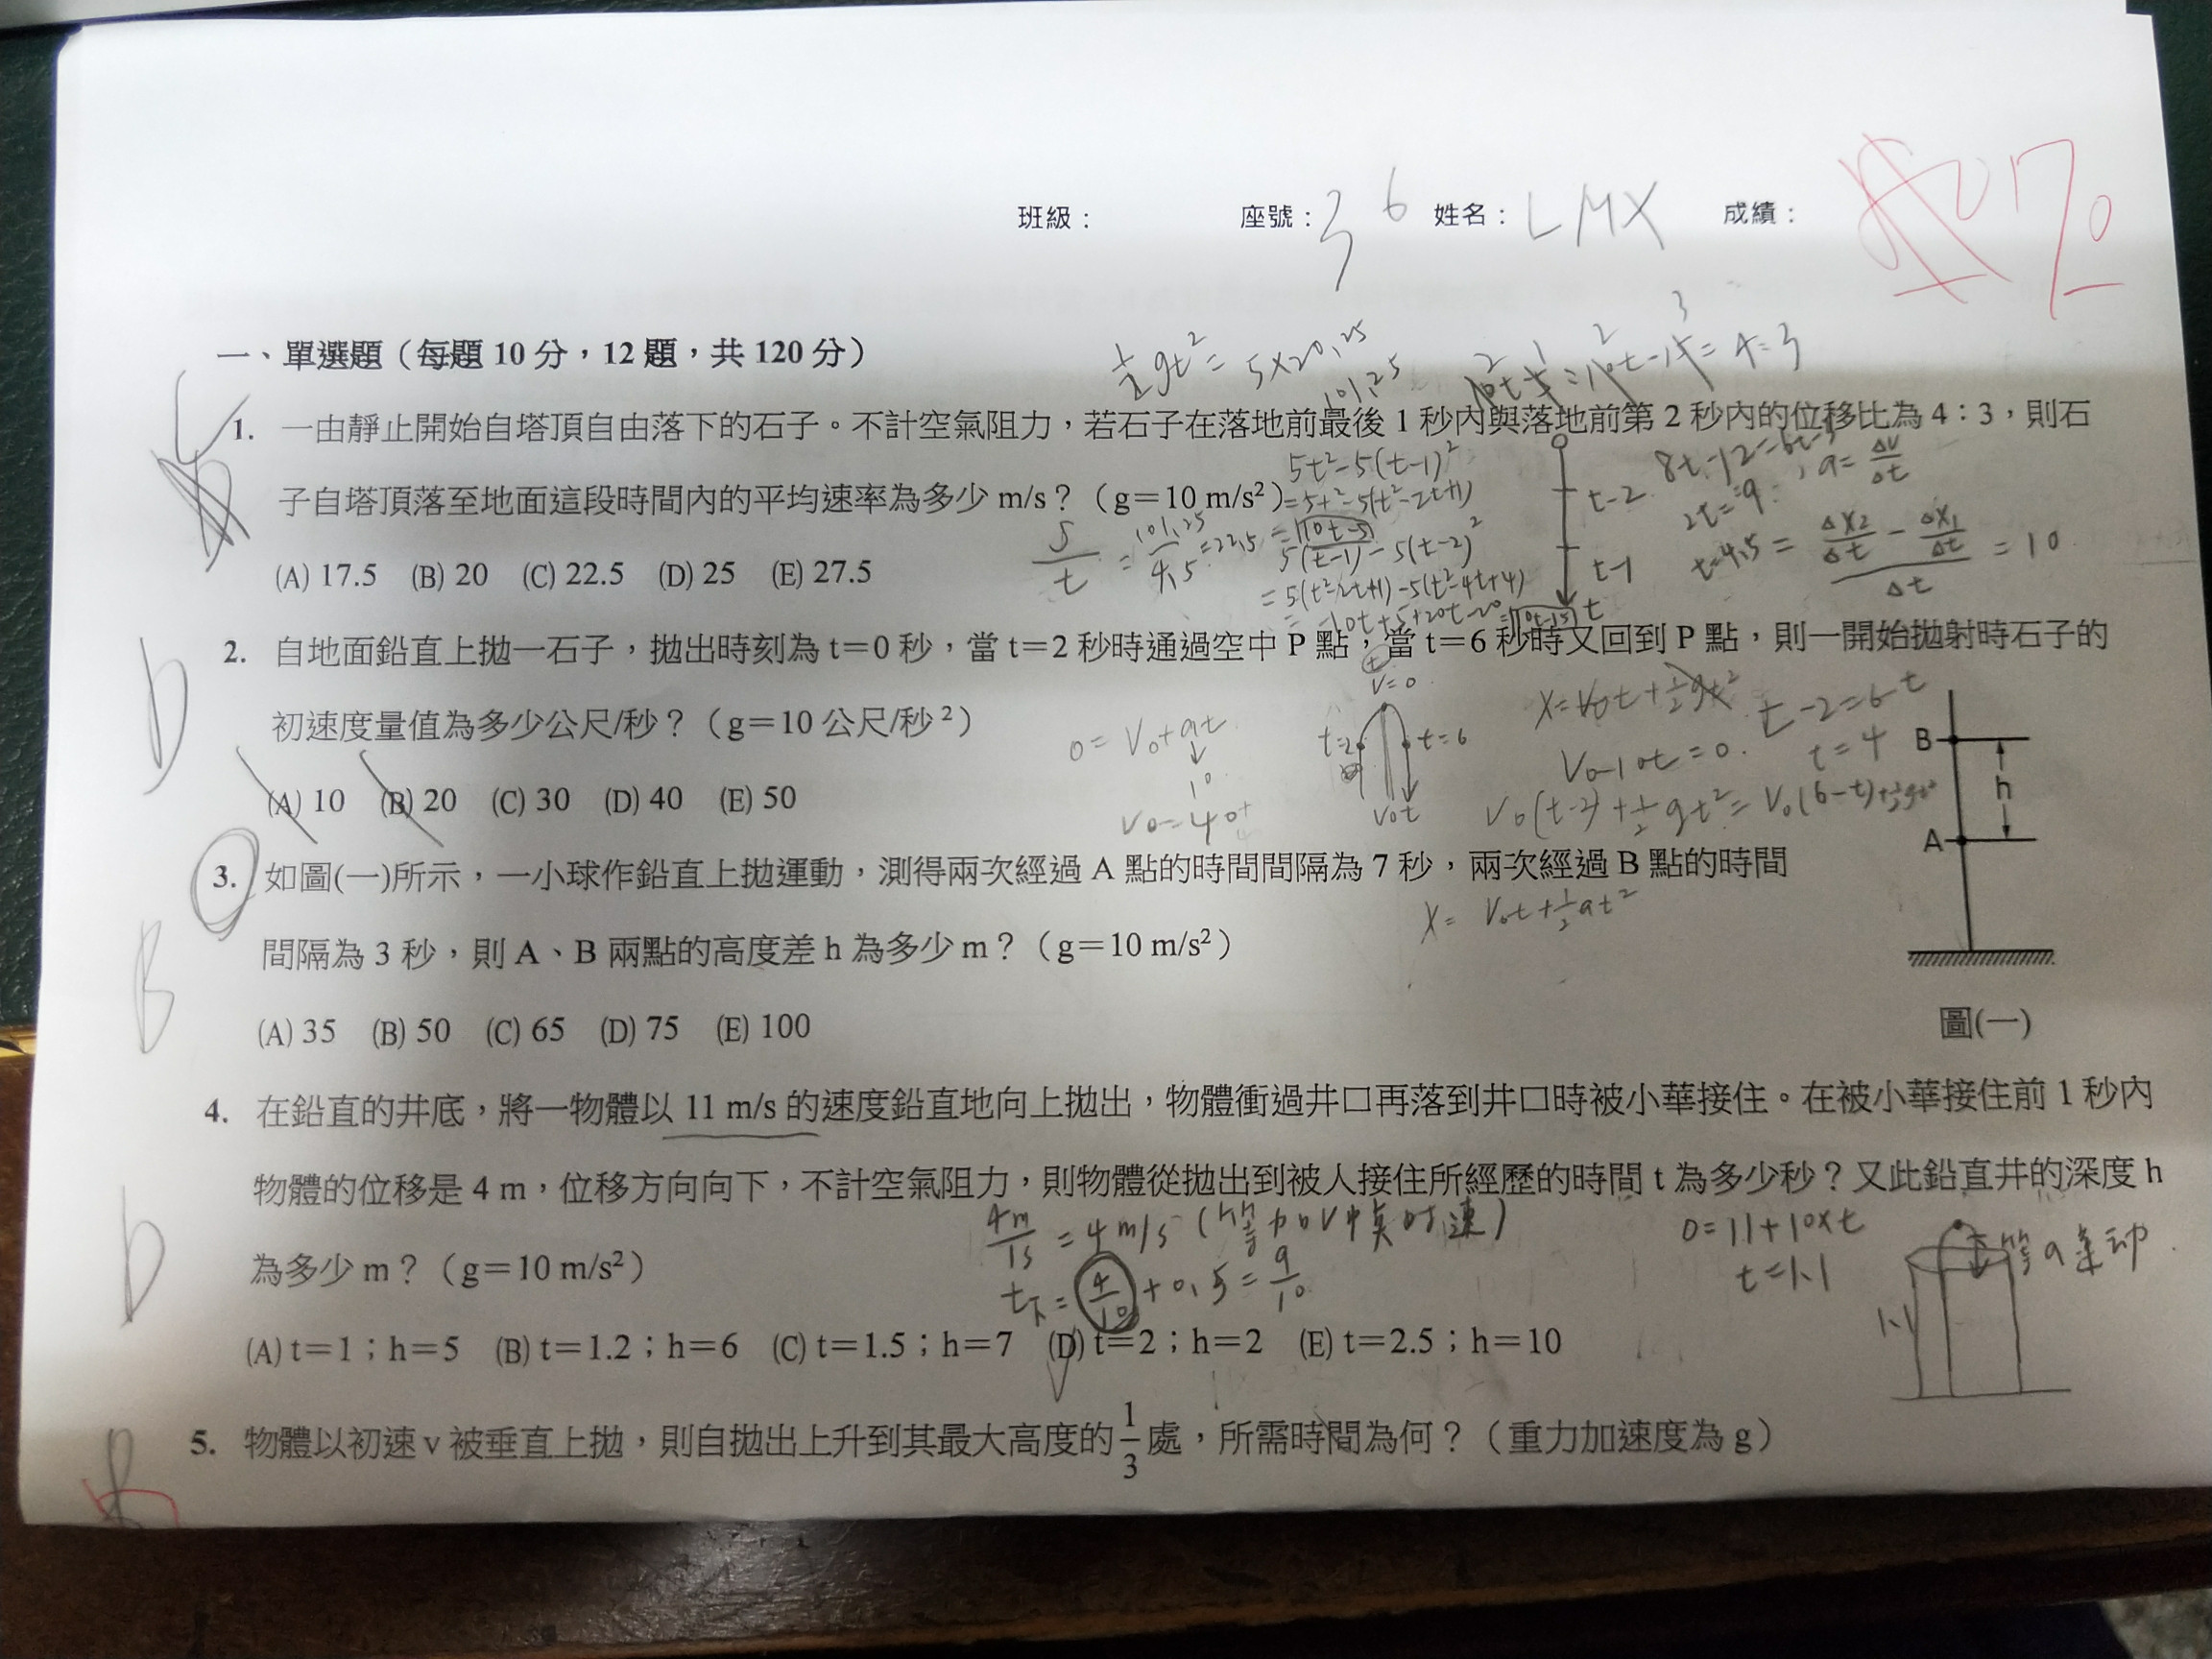 班級： 座號：36 姓名：LMX 成績：
一、單選題（每題 10 分，12 題，共 120 分）
½gt² = 5×20.25
101.25
C
1. 一由靜止開始自塔頂自由落下的石子。不計空氣阻力，若石子在落地前最後 1 秒內與落地前第 2 秒內的位移比為 4：3，則石
子自塔頂落至地面這段時間內的平均速率為多少 m/s？（g＝10 m/s²）
(A) 17.5 (B) 20 (C) 22.5 (D) 25 (E) 27.5
5t²-5(t-1)²
=5t²-5(t²-2t+1)
=10t-5
5(t-1)-5(t-2)²
=5(t²-2t+1)-5(t²-4t+4)
=-10t+5+20t-20=10t-15
S/t = 101.25/4.5 = 22.5
t-2
t-1
t
2t=9
t=4.5
a=Δv/Δt
= 10
D
2. 自地面鉛直上拋一石子，拋出時刻為 t＝0 秒，當 t＝2 秒時通過空中 P 點，當 t＝6 秒時又回到 P 點，則一開始拋射時石子的
初速度量值為多少公尺/秒？（g＝10 公尺/秒²）
(A) 10 (B) 20 (C) 30 (D) 40 (E) 50
0=V₀+at
10
V₀=40
V=0
t=2
t=6
V₀t
X=V₀t+½gt²
t-2=6-t
V₀-10t=0
t=4
V₀(t-2)+½gt²=V₀(6-t)+½gt²
B
3. 如圖(一)所示，一小球作鉛直上拋運動，測得兩次經過 A 點的時間間隔為 7 秒，兩次經過 B 點的時間
間隔為 3 秒，則 A、B 兩點的高度差 h 為多少 m？（g＝10 m/s²）
(A) 35 (B) 50 (C) 65 (D) 75 (E) 100
X= V₀t+½at²
B
h
A
圖(一)
D
4. 在鉛直的井底，將一物體以 11 m/s 的速度鉛直地向上拋出，物體衝過井口再落到井口時被小華接住。在被小華接住前 1 秒內
物體的位移是 4 m，位移方向向下，不計空氣阻力，則物體從拋出到被人接住所經歷的時間 t 為多少秒？又此鉛直井的深度 h
為多少 m？（g＝10 m/s²）
(A) t＝1；h＝5 (B) t＝1.2；h＝6 (C) t＝1.5；h＝7 (D) t＝2；h＝2 (E) t＝2.5；h＝10
4m/1s = 4 m/s
t下= 4/10 +0.5= 9/10
0=11+10×t
t=1.1
1.1
5. 物體以初速 v 被垂直上拋，則自拋出上升到其最大高度的 1/3 處，所需時間為何？（重力加速度為 g）